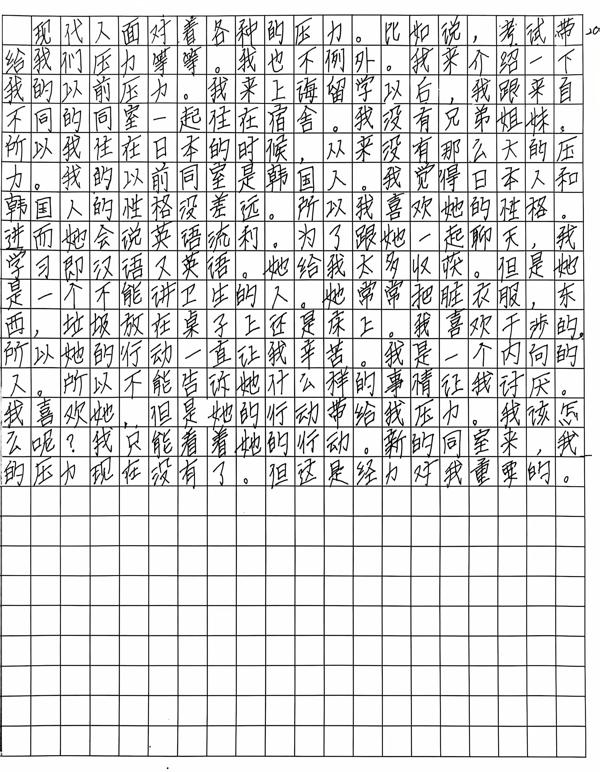 现代人面对着各种的压力。比如说，考试带
给我们压力等等。我也不例外。我来介绍一下
我的以前压力。我来上海留学以后，我跟来自
不同的同室一起住在宿舍。我没有兄弟姐妹。
所以我住在日本的时候，从来没有那么大的压
力。我的以前同室是韩国人。我觉得日本人和
韩国人的性格没差远。所以我喜欢她的性格。
进而她会说英语流利。为了跟她一起聊天，我
学习即汉语又英语。她给我太多收获。但是她
是一个不能讲卫生的人。她常常把脏衣服，东
西，垃圾放在桌子上还是床上。我喜欢干涉的，
所以她的行动一直让我辛苦。我是一个内向的
人。所以不能告诉她什么样的事情让我讨厌。
我喜欢她，但是她的行动带给我压力。我该怎
么呢？我只能看着她的行动。新的同室来，我
的压力现在没有了。但这是经力对我重要的。